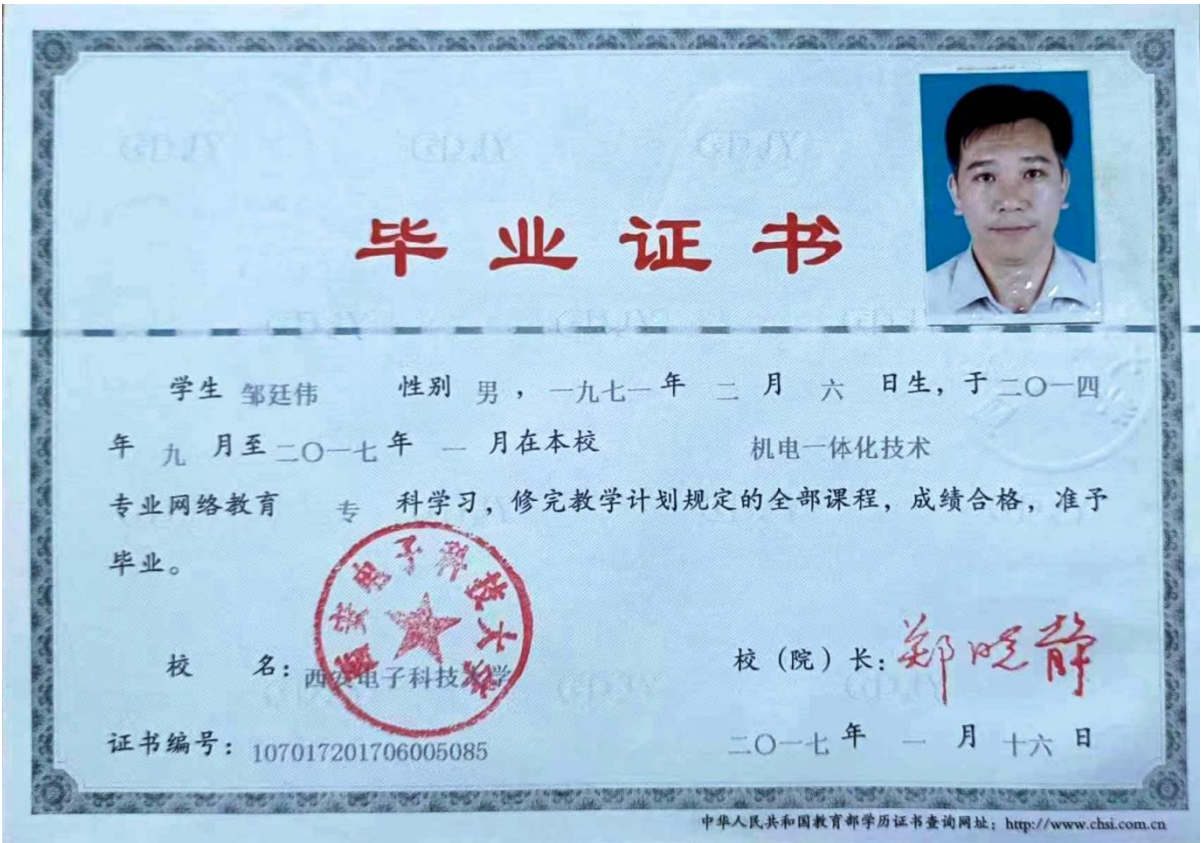 毕业证书
学生 邹廷伟 性别 男，一九七一年 二 月 六 日生，于 二〇一四
年 九 月至 二〇一七 年 一 月在本校 机电一体化技术
专业网络教育 专 科学习，修完教学计划规定的全部课程，成绩合格，准予
毕业。
西安电子科技大学
校 名：西安电子科技大学 校（院）长：郑晓静
证书编号：107017201706005085 二〇一七 年 一 月 十六 日
中华人民共和国教育部学历证书查询网址：http://www.chsi.com.cn